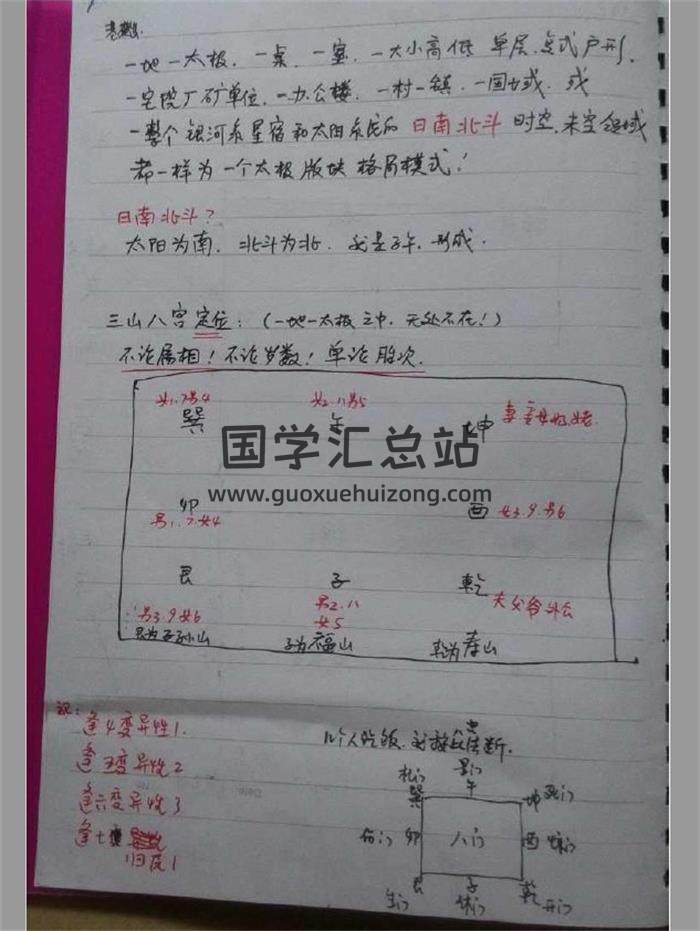 一地一太极、一桌、一室、一大小高低 单层、点式户形、
一宅院厂矿单位、一办公楼、一村一镇、一国地域、或
一整个银河系星宿和太阳系或的 日南北斗 时空、未空领域
都一样为一个太极版块格局模式！
日南北斗？
太阳为南、北斗为北、形成.
三山八宫定位：（一地一太极之中、无处不在！）
不论属相！不论岁数！单论胎次.
女1.7男4 女2.11男5 妻母姥
巽 午 坤
国学汇总站
www.guoxuehuizong.com
卯 酉 女3.9.男6
男1.7.女4
艮 子 乾 夫父爷外公
男3.9女6 男2.11 女5
艮为子孙山 子为福山 乾为寿山
记：
逢4变异性1.
逢五变异性2
逢六变异性3
逢七 归反1
几个人吃饭、断.
杜门 景门 死门
巽 午 坤
伤门 卯 八门 酉 惊门
艮 子 乾
生门 休门 开门